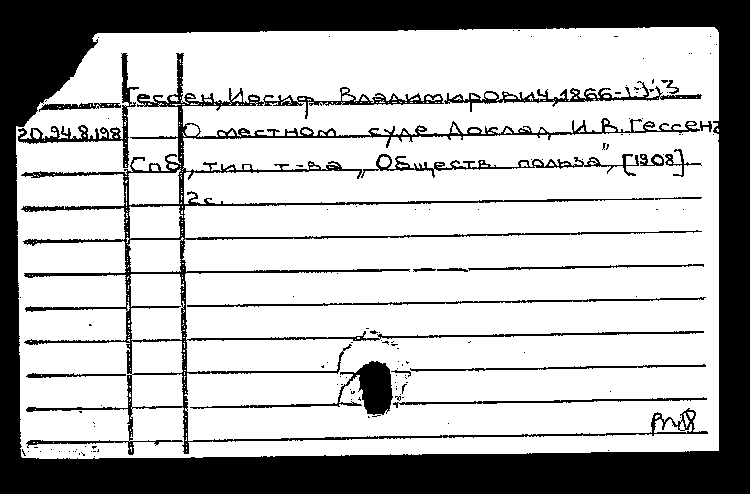 Гессен, Иосиф Владимирович, 1866-1943
20.94.8.198 О местном суде. Доклад И.В.Гессенъ
Спб., тип. т-ва „Обществ. польза”, [1908].
2с.